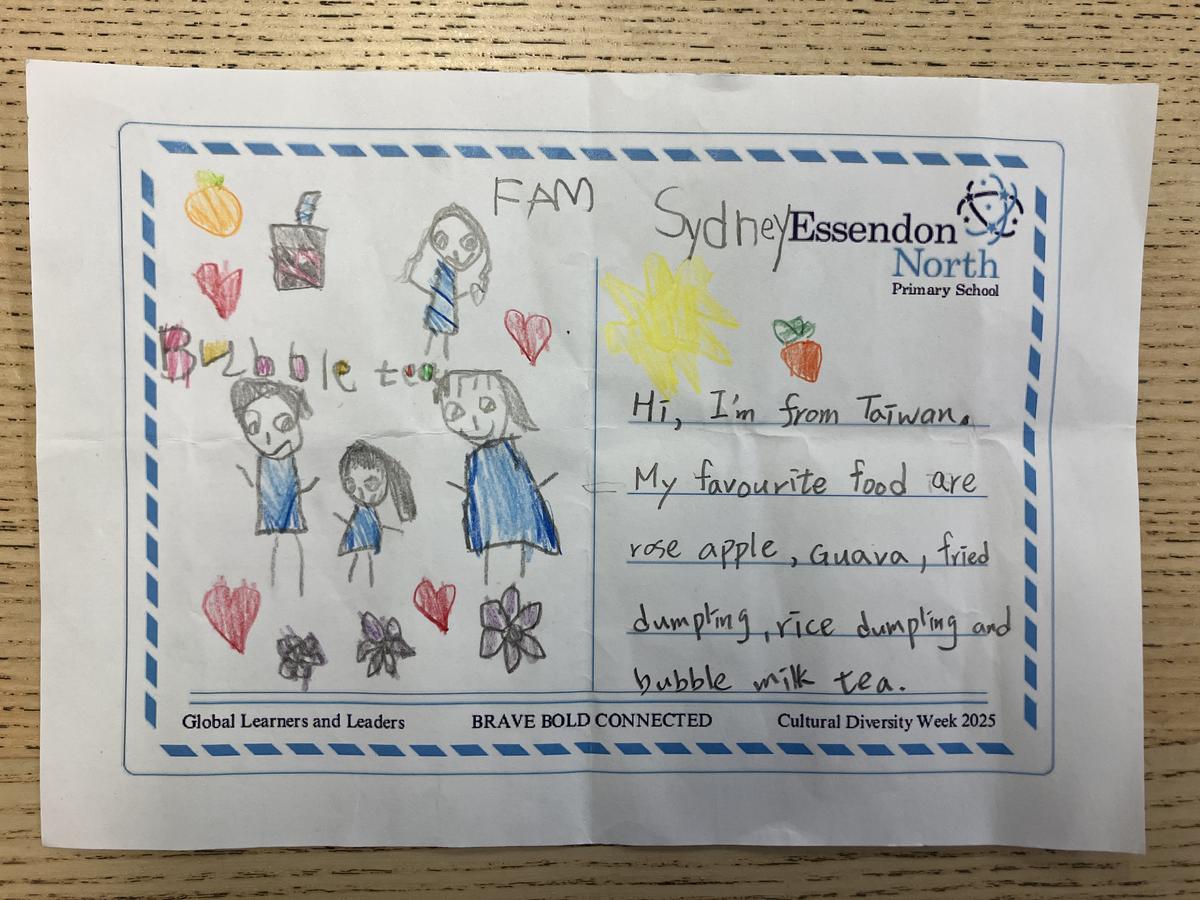 FAM
Bubble tea
Sydney
Essendon
North
Primary School
Hi, I'm from Taiwan.
My favourite food are
rose apple, Guava, fried
dumpling, rice dumpling and
bubble milk tea.
Global Learners and Leaders
BRAVE BOLD CONNECTED
Cultural Diversity Week 2025